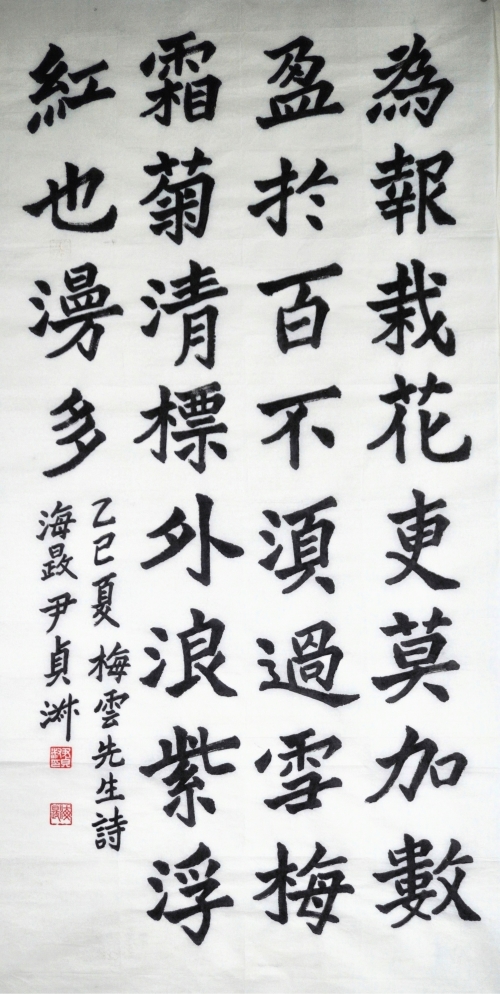 為報栽花更莫加數
盈於百不須過雪梅
霜菊清標外浪紫浮
紅也漫多
乙巳夏 梅雲先生詩
尹貞淋